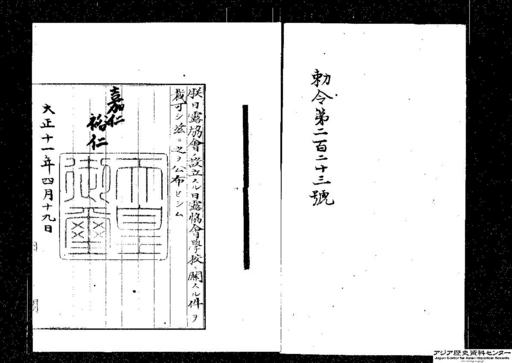 勅令第二百二十三號
朕日露協會ノ設立スル日露協會學校ニ關スル件ヲ
裁可シ茲ニ之ヲ公布セシム
嘉仁
裕仁
天皇
御璽
大正十一年四月十九日
アジア歴史資料センター
Japan Center for Asian Historical Records